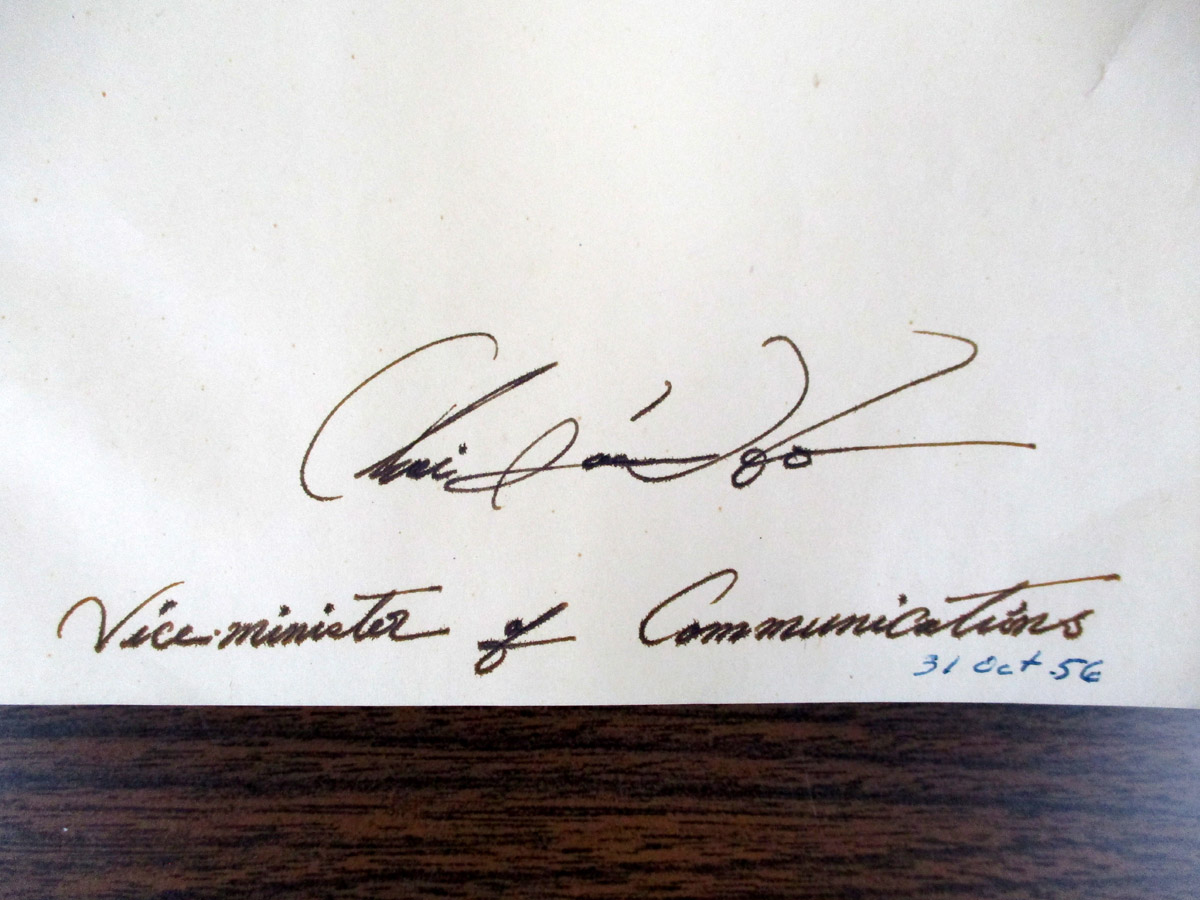 Vice-minister of Communications
31 Oct. 56